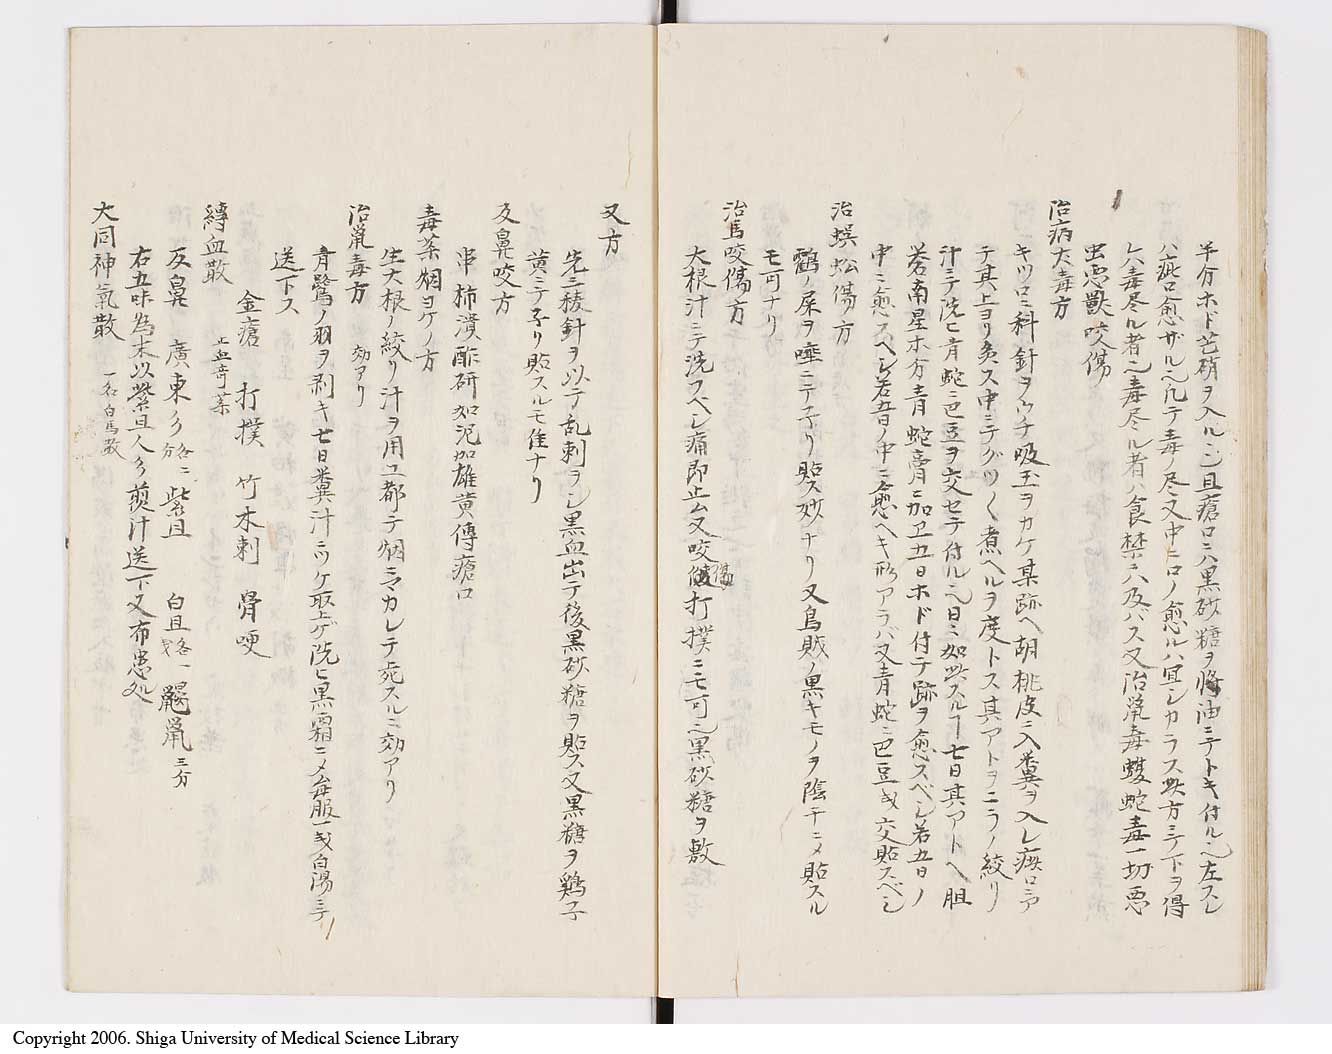 半分ホド芒硝ヲ入ルヽ且瘡口ニハ黒砂糖ヲ将油ニテトキ付ル也左スレ
ハ疵口愈ザル也凡テ毒ノ尽又中ニ口ノ愈ルハ宜シカラス此方ニテ下ヲ得
ル六毒尽ル者也毒尽ル者ハ食禁ニハ及バス又治鼠毒蝮蛇毒一切悪
虫悪獣咬傷
治病犬毒方
キツ口ニ科針ヲウチ吸玉ヲカケ其跡ヘ胡桃皮ニ人糞ヲ入レ疾口ニア
テ其上ヨリ灸ス中ニテグツ〳〵煮ヘルヲ度トス其アトヲニラノ絞リ
汁ニテ洗ヒ青蛇ニ巴豆ヲ交セテ付ル也日ニ如此スルヿ七日其アトヘ胆
蒼南星末分青蛇膏ニ加ヱ五日ホド付テ跡ヲ愈スベシ若五日ノ
中ニ愈スヘシ若百ノ中ニ愈ヘキ形アラバ又青蛇ニ巴豆或交貼スベシ
治蜈蚣傷方
鶴ノ屎ヲ唾ニテ子リ貼ス妙ナリ又烏賊ノ黒キモノヲ陰干ニメ貼スル
モ可ナリ
治馬咬傷方
大根汁ニテ洗フベシ痛即止ム又咬傷打撲ニモ可也黒砂糖ヲ敷
又方
先三稜針ヲ以テ乱刺ヲシ黒血出テ後黒砂糖ヲ貼ス又黒糖ヲ鶏子
黄ニテ子リ貼スルモ佳ナリ
反鼻咬方
串柿漬酢研如泥加雄黄傳瘡口
毒茶烟ヨケノ方
生大根ノ絞リ汁ヲ用ユ都テ烟ニマカレテ死スルニ効アリ
治鼠毒方 効アリ
青鷺ノ羽ヲ剥キ七日糞汁ニツケ取上ゲ洗ヒ黒霜ニメ毎服一戔白湯ニテ
送下ス
金瘡 打撲 竹木刺 骨哽
縛血散 止血奇薬
反鼻 廣東人参 各二分 紫且 白且 各一戔 鼴鼠 三分
右五味為末以紫且人参煎汁送下又布患処
大同神氣散 一名白馬散